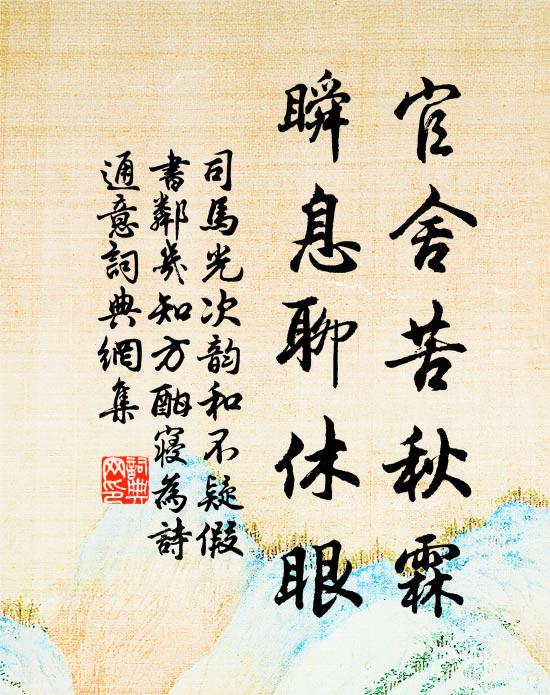 官舍苦秋霖
瞬息聊休眼
司馬光次韵和不疑假
書鄰幾知方酣寝為詩
通意詞典網集
詞典
网印